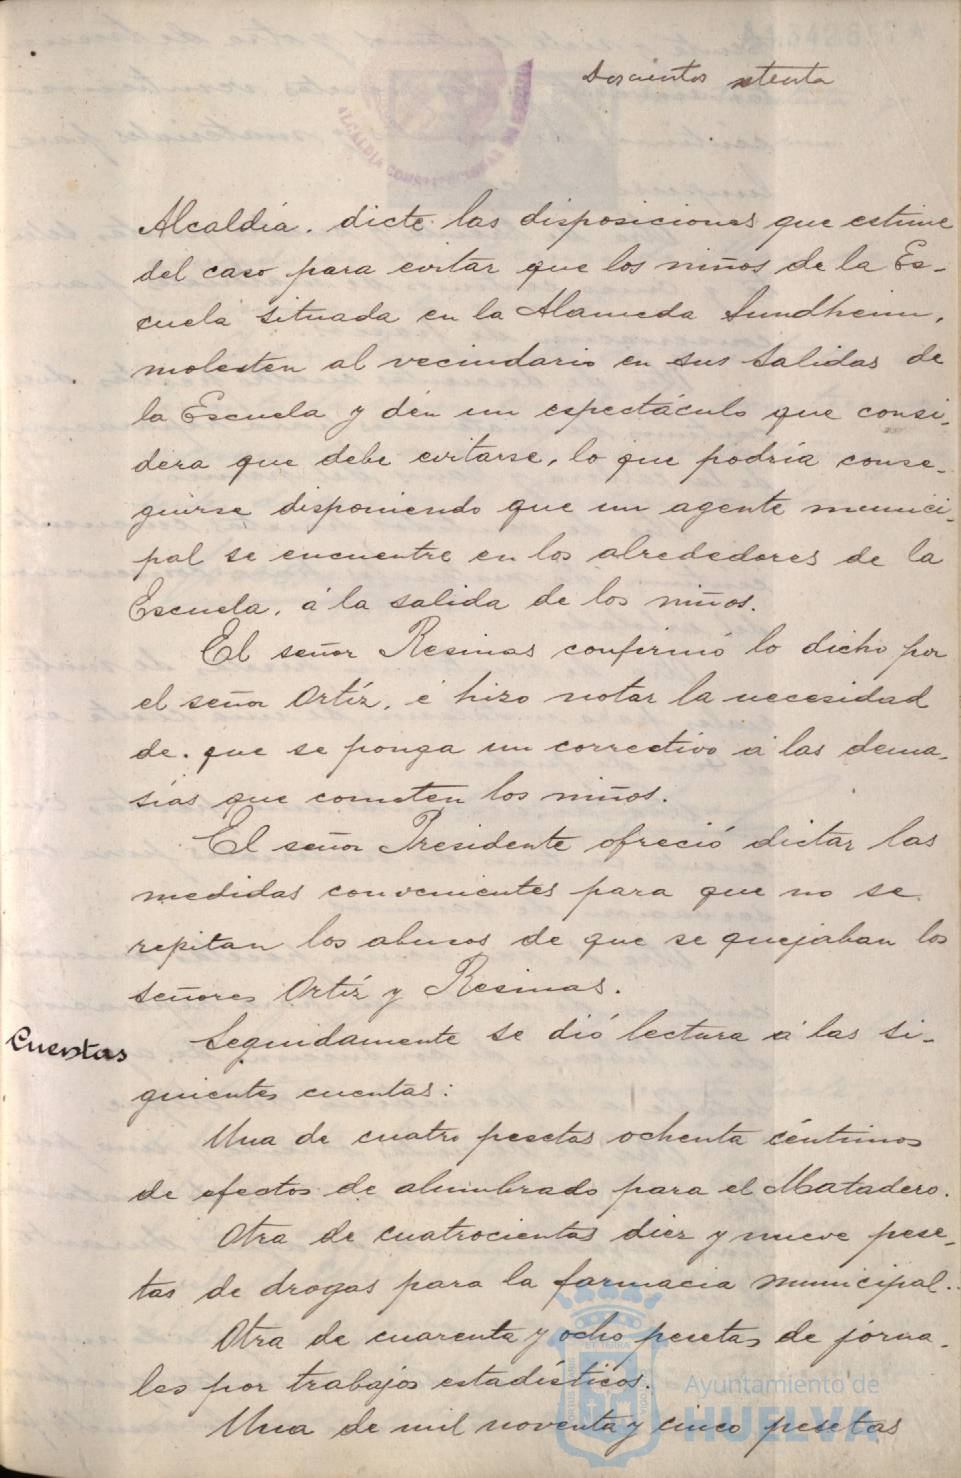 Doscientos setenta
Alcaldía. dicte las disposiciones que estime
del caso para evitar que los niños de la Es-
cuela situada en la Alameda Sundheim,
molesten al vecindario en sus salidas de
la Escuela y dén un espectáculo que consi-
dera que debe evitarse, lo que podría conse-
guirse disponiendo que un agente munici-
pal se encuentre en los alrededores de la
Escuela, á la salida de los niños.
El señor Resinas confirmó lo dicho por
el señor Ortíz, é hizo notar la necesidad
de que se ponga un correctivo á las dema-
sías que cometen los niños.
El señor Presidente ofreció dictar las
medidas convenientes para que no se
repitan los abusos de que se quejaban los
señores Ortíz y Resinas.
Cuentas
Seguidamente se dió lectura á las si-
guientes cuentas:
Una de cuatro pesetas ochenta céntimos
de efectos de alumbrado para el Matadero.
Otra de cuatrocientas diez y nueve pese-
tas de drogas para la farmacia municipal.
Otra de cuarenta y ocho pesetas de jorna-
les por trabajos estadísticos.
Una de mil noventa y cinco pesetas
Ayuntamiento de
HUELVA